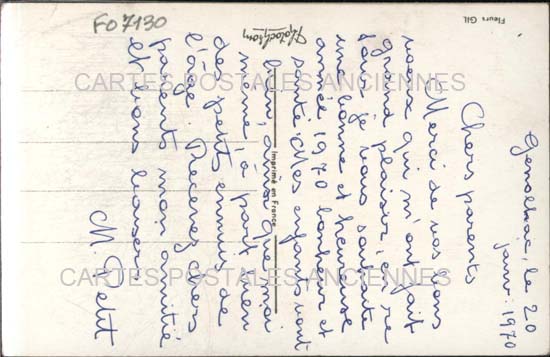 Fleurs GIL
Genolhac, le 20
janv. 1970
Chers parents
Merci de vos bons
voeux qui m'ont fait
grand plaisir, à
tour je vous souhaite
une bonne et heureuse
année 1970 bonheur et
santé. Mes enfants vont
bien, ainsi que moi
même, à part bien
des petits ennuis de
l'âge. Recevez chers
parents mon amitié
et bons baisers.
M. Petit
Photochrom
Imprimé en France
FO 7130
CARTES POSTALES ANCIENNES
CARTES POSTALES ANCIENNES